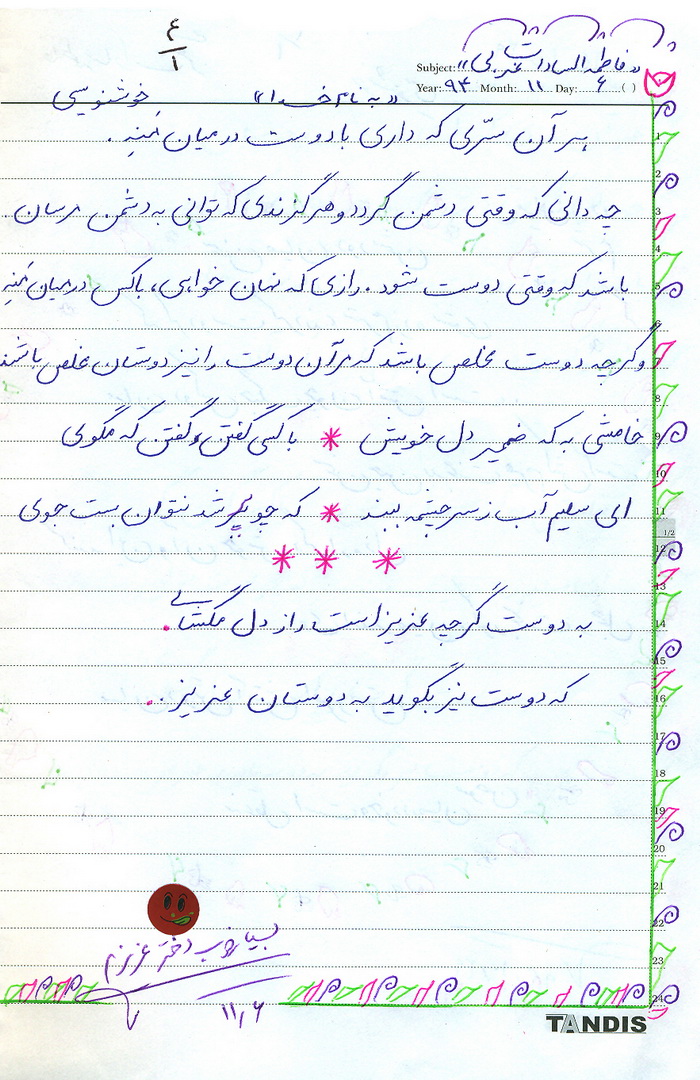 ۴
۱
Subject: «فاطمه السادات غربی»
Year: ۹۴ Month: ۱۱ Day: ۶ ( )
«به نام خدا» خوشنویسی
هر آن سرّی که داری با دوست در میان منه .
چه دانی که وقتی دشمن گردد و هر گزندی که توانی به دشمن مرسان
باشد که وقتی دوست شود . رازی که نهان خواهی ، باکس در میان منه
وگرچه دوست مخلص باشد که مرآن دوست را نیز دوستان مخلص باشد
خامشی به که ضمیر دل خویش * با کسی گفتن و گفتن که مگوی
ای سلیم آب ز سرچشمه ببند * که چو پر شد نتوان بست جوی
* * *
به دوست گرچه عزیز است راز دل مگشای .
که دوست نیز بگوید به دوستان عزیز .
بسیار خوب دختر عزیزم
۱۱/۶
1
2
3
4
5
6
7
8
9
10
11
1/2
12
13
14
15
16
17
18
19
20
21
22
23
24
TANDIS